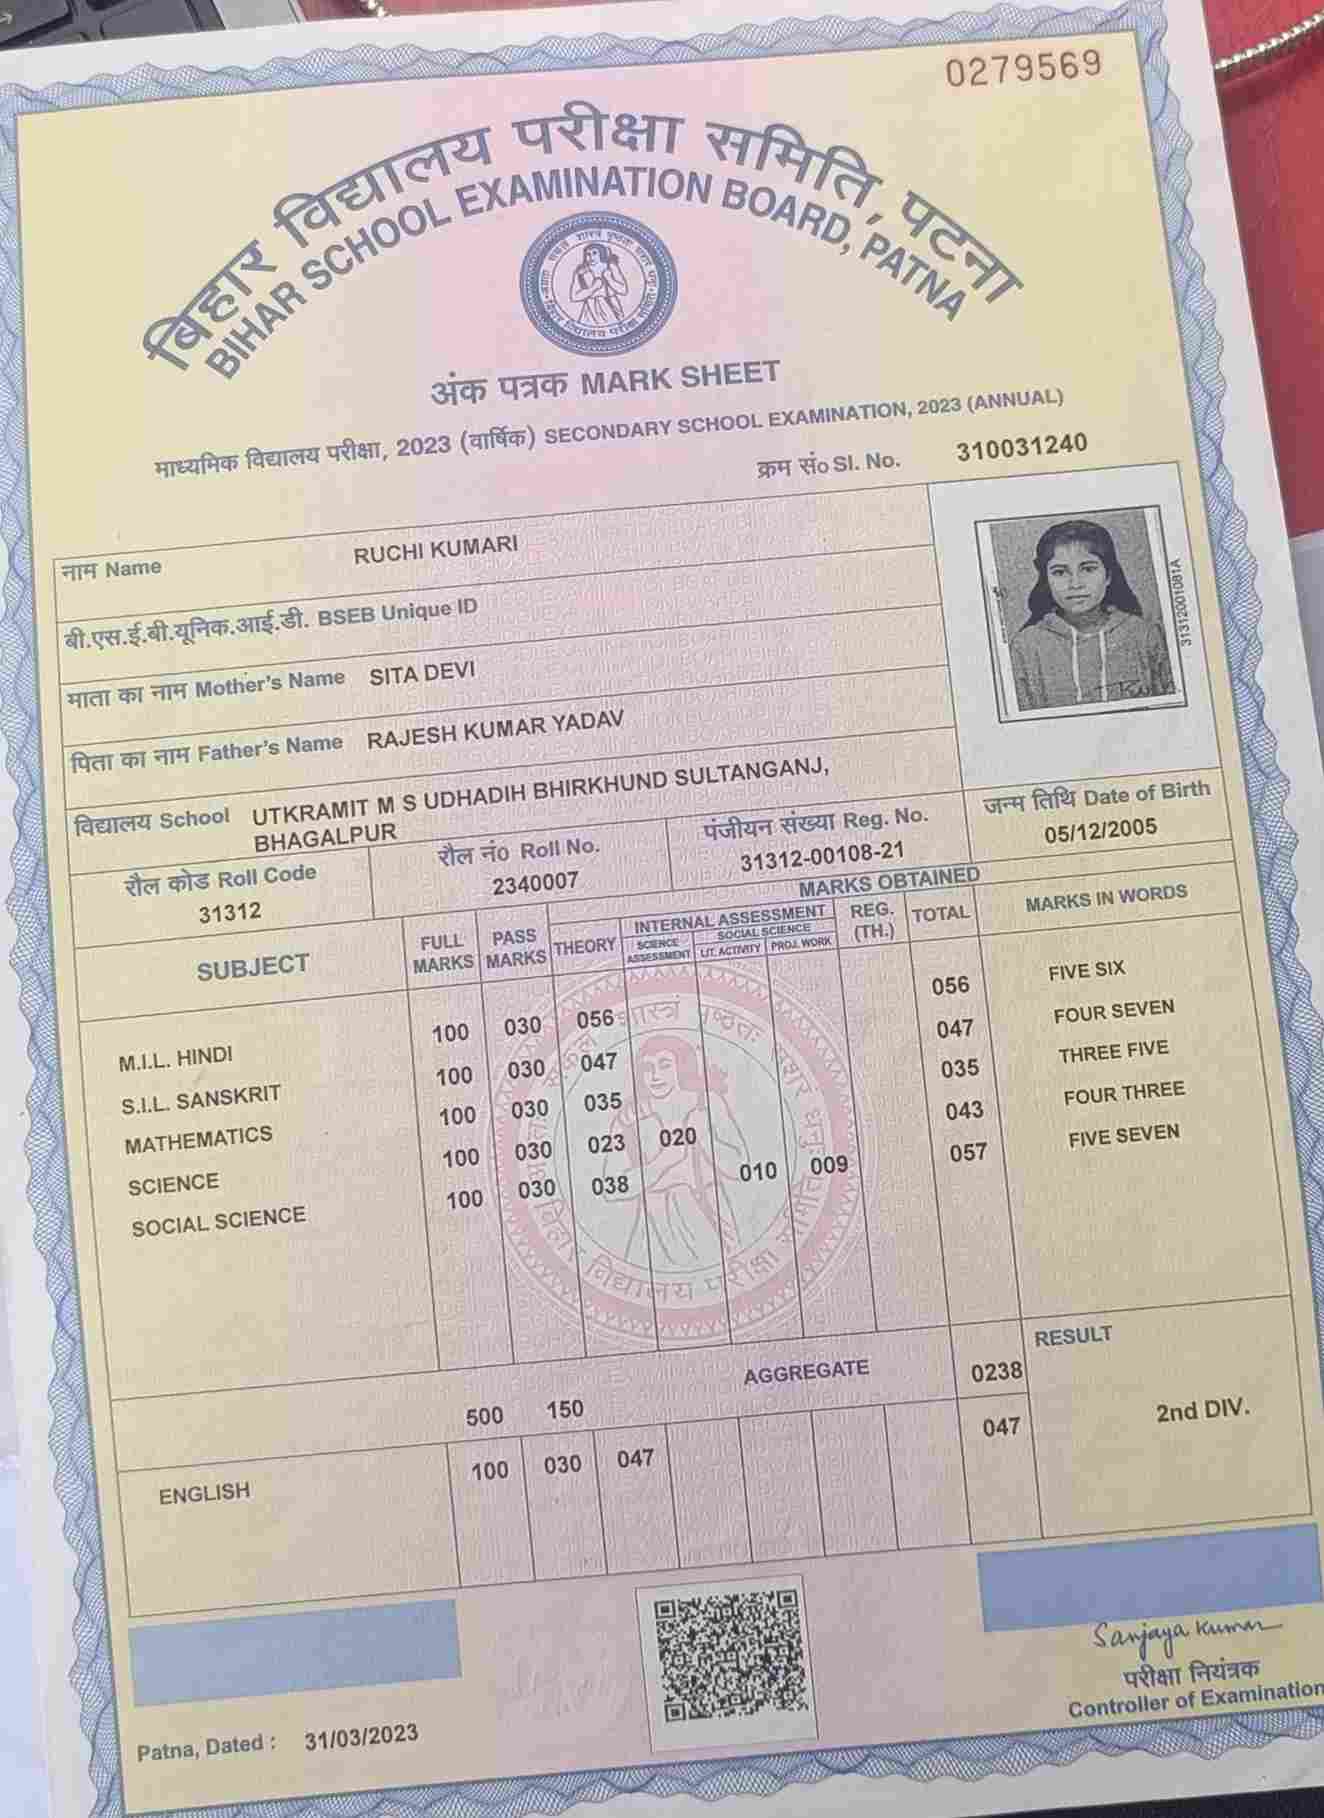 0279569
बिहार विद्यालय परीक्षा समिति, पटना
BIHAR SCHOOL EXAMINATION BOARD, PATNA
अंक पत्रक MARK SHEET
माध्यमिक विद्यालय परीक्षा, 2023 (वार्षिक) SECONDARY SCHOOL EXAMINATION, 2023 (ANNUAL)
क्रम सं० Sl. No. 310031240
नाम Name RUCHI KUMARI
बी.एस.ई.बी.यूनिक.आई.डी. BSEB Unique ID
माता का नाम Mother's Name SITA DEVI
पिता का नाम Father's Name RAJESH KUMAR YADAV
31312001081A
विद्यालय School UTKRAMIT M S UDHADIH BHIRKHUND SULTANGANJ,
BHAGALPUR
रौल कोड Roll Code रौल नं० Roll No. पंजीयन संख्या Reg. No. जन्म तिथि Date of Birth
31312 2340007 31312-00108-21 05/12/2005
MARKS OBTAINED
SUBJECT FULL MARKS PASS MARKS THEORY INTERNAL ASSESSMENT REG. (TH.) TOTAL MARKS IN WORDS
SCIENCE ASSESSMENT SOCIAL SCIENCE LIT. ACTIVITY PROJ. WORK
M.I.L. HINDI 100 030 056 056 FIVE SIX
S.I.L. SANSKRIT 100 030 047 047 FOUR SEVEN
MATHEMATICS 100 030 035 035 THREE FIVE
SCIENCE 100 030 023 020 043 FOUR THREE
SOCIAL SCIENCE 100 030 038 010 009 057 FIVE SEVEN
विद्यालय परीक्षा
500 150 AGGREGATE 0238 RESULT
2nd DIV.
ENGLISH 100 030 047 047
Sanjaya Kumar
परीक्षा नियंत्रक
Controller of Examination
Patna, Dated : 31/03/2023